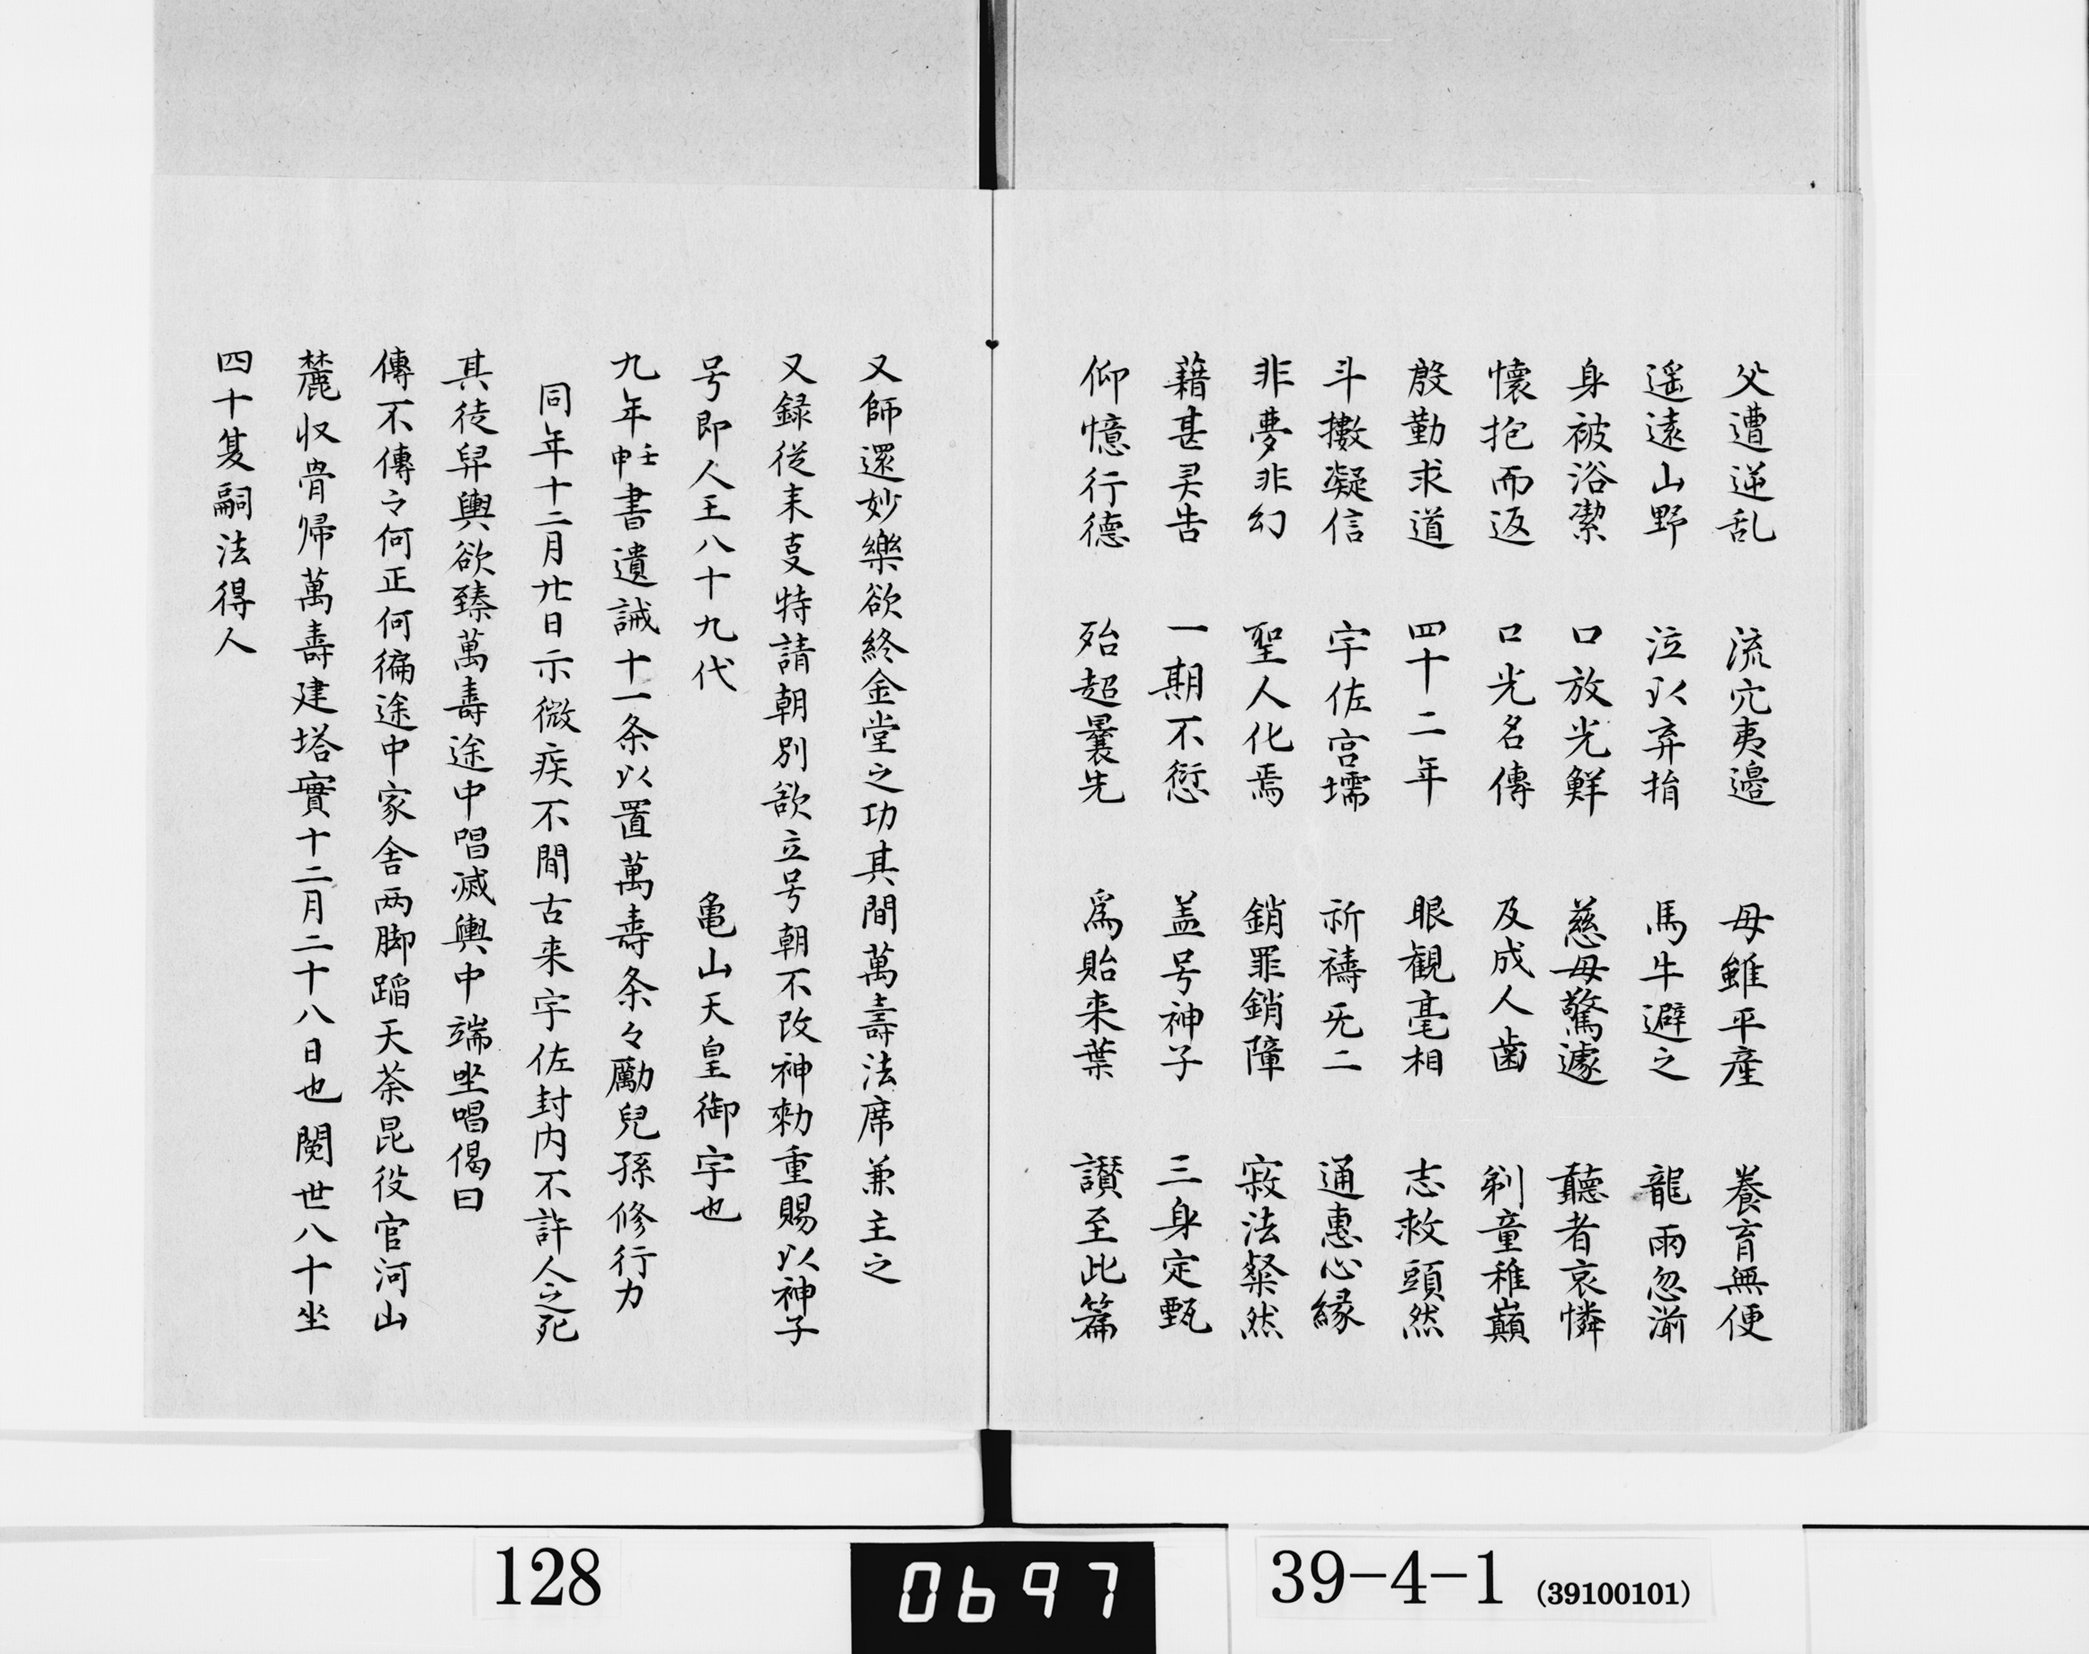 父遭逆乱　流穴夷邉　母雖平産　養育無便
遥遠山野　泣以弃捐　馬牛避之　龍雨忽湔
身被浴潔　口放光鮮　慈母驚遽　聽者哀憐
懷抱而返　口光名傳　及成人歯　剃童稚巓
殷勤求道　四十二年　眼観毫相　志救頭然
斗擻凝信　宇佐宮壖　祈禱旡二　通惠心縁
非夢非幻　聖人化焉　銷罪銷障　寂法粲然
藉甚灵告　一期不愆　盖号神子　三身定甄
仰憶行德　殆超曩先　爲貽来葉　讃至此篇
又師還妙樂欲終金堂之功其間萬壽法席兼主之
又録従来㕝特請朝別欲立号朝不改神勅重賜以神子
号即人王八十九代　亀山天皇御宇也
九年壬申書遺誡十一条以置萬壽条々勵兒孫修行力
同年十二月廿日示微疾不間古来宇佐封内不許人之死
其徒舁輿欲臻萬壽途中唱滅輿中端坐唱偈曰
傳不傳之何正何徧途中家舎两脚蹈天荼毘役官河山
麓収骨帰萬壽建塔實十二月二十八日也閲世八十坐
四十夏嗣法得人
128
0697
39-4-1 (39100101)